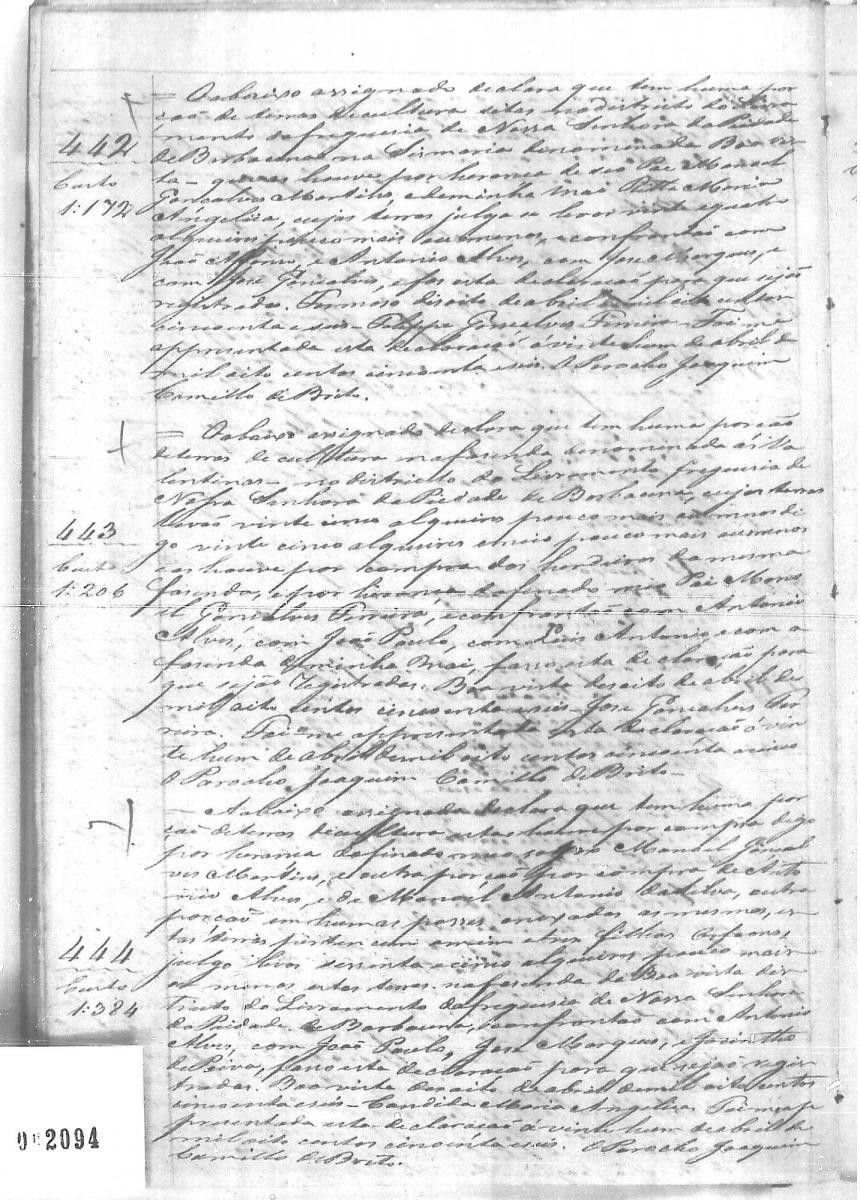 = O abaixo assignado declara que tem huma por
ção de terras de cultura sitas no districto do Livra
mento da freguesia de Nossa Senhora da Piedade
442
de Barbacena na Sismaria denominada Boa vis
ta - que as houve por herança de seo Pai Manoel
Custo
Gonçalves Martins, e de minha Mai Maria
1:172
Angelica, cujas terras julga se levar vinte e quatro
alqueires pouco mais ou menos, e confrontão com
João Affonso, e Antonio Alves, com Jose Marques, e
com Jose Gonçalves, e fas esta declaração para que sejão
registradas. Formoso disoito de abril de mil oito centos
cincoenta e seis - Felippe Gonçalves Ferreira - Foi me
appresentada esta declaração á vinte hum de abril de
mil oito centos cincoenta e seis. O Parocho Joaquim
Camillo de Brito.
= O abaixo assignado declara que tem huma porção
de terras de cultura na fasenda denominada as Va
lentinas - no districto do Livramento freguesia de
Nossa Senhora da Piedade de Barbacena, cujas terras
443
levão vinte cinco alqueires pouco mais ou menos di
go vinte cinco alqueires e meio pouco mais ou menos
Custo
e as houve por compra dos herdeiros da mesma
1:206
fasenda, e por herança do finado meu Pai Mano
el Gonçalves Ferreira, e confrontão com Antonio
Alves, com João Paulo, com Luis Antonio e com a
fasenda de minha Mai, fasso esta declaração para
que sejão registradas. Boa vista desoito de abril de
mil oito centos cincoenta e seis - Jose Gonçalves Fer
reira. Foi-me appresentada esta declaração á vin
te hum de abril de mil oito centos cincoenta e seis
O Parocho Joaquim Camillo de Brito -
- A abaixo assignada declara que tem huma por
ção de terras de cultura e as houve por compra digo
por herança do finado meu sogro Manoel Gonçal
ves Martins, e outra porção por compra de Anto
nio Alves, e de Manoel Antonio da Silva, e outra
porção em humas posses anexadas as mesmas, es
444
tas terras pertencem a mim e tres filhos orfaons,
julgo levar sessenta e cinco alqueires pouco mais
Custo
ou menos estas terras na fasenda da Boa vista dis
1:384
tricto do Livramento da freguesia de Nossa Senhora
da Piedade de Barbacena, e confrontão com Antonio
Alves, com João Paulo, Jose Marques, e Jacintho
de Paiva, fasso esta declaração para que sejão regis
tradas. Boa vista desoito de abril de mil oito centos
cincoenta e seis - Candida Maria Angelica. Foi me ap
presentada esta declaração á vinte hum de abril de
mil oito centos cincoenta e seis. O Parocho Joaquim
Camillo de Brito.
2094